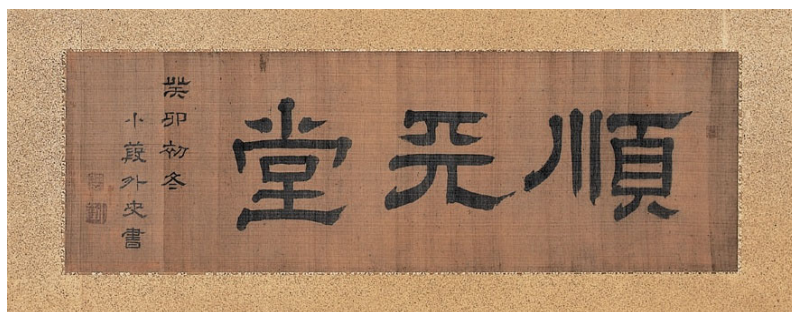 順天堂
癸卯初冬
小蓑外史書